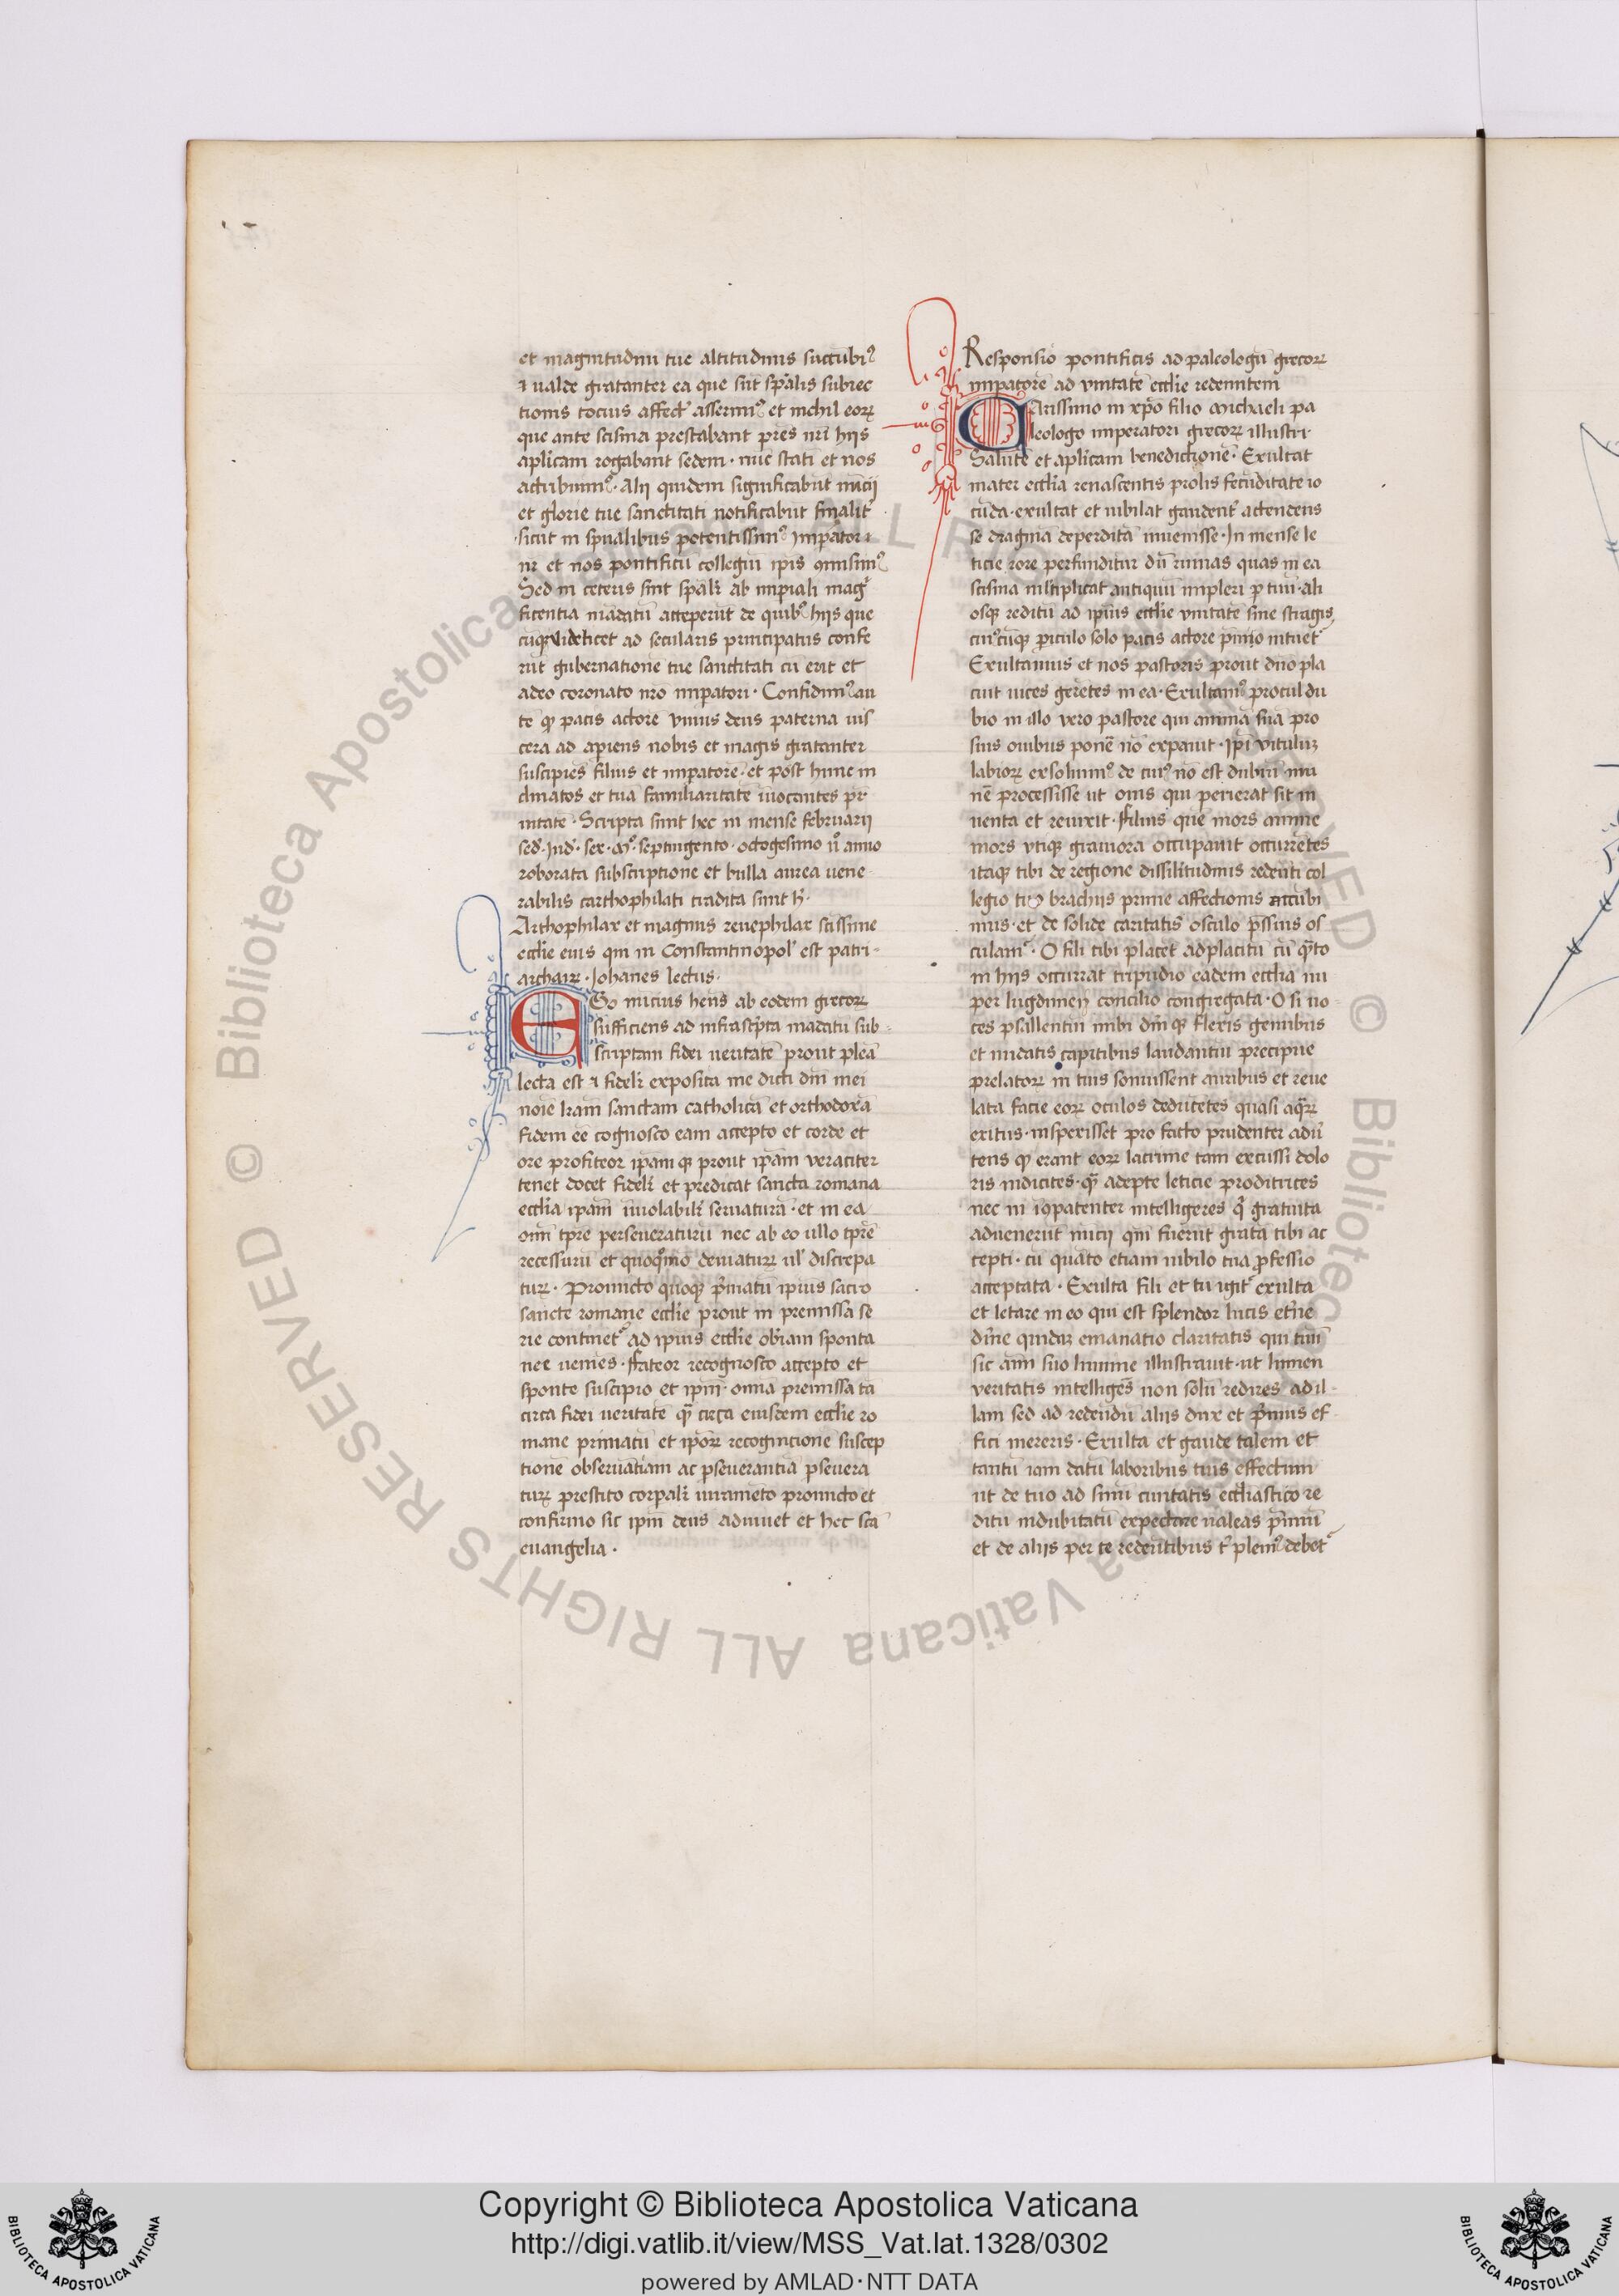 et magnitudini tue altitudinis succūbi⁹
⁊ ualde gratanter ea que sūt sp̄alis subiec
tionis tocius affect᷒ asserim⁹ et nichil eoꝝ
que ante scisma prestabant pr̄es nr̄i hijs
aplicam rogabant sedem · nūc stati et nos
actribuim⁹ · Alij quidem significabūt nūcij
et glorie tue sanctitati notificabūt finalit᷒
sicut in spūalibus potentissim⁹ Impator
nr̄ et nos pontificū collegiū ip̄is
Sed in ceteris sint sp̄ali ab impiali mag
ficentia mādatū acceperūt de quib⁹ hijs que
cūqꝫ videlicet ad secularis principatus confe
rūt gubernatione tue sanctitati cū erit et
adeo coronato nr̄o impatori · Confidim⁹ au
tē qꝫ pacis actorē vnius deus paterna uis
cera ad apiens nobis et magis gratanter
suscipies filius et impatorē · et post hunc in
clinatos et tuā familiaritatē īuocantes pr̄
nitate · Scripta sunt hec in mense februarij
sed · Ind᷒ · sex · septingento · octogesimo anno
roborata subscriptione et bulla aurea uene
rabilis carthophilati tradita sunt
Arthophilax et magnus reuephilax scissime
ecclie eius qui in Constantinopol᷒ est patri
archaꝝ · Johanes lectus ·
Ego nūcius hens ab eodem grecoꝝ
sufficiens ad infrascp̄ta mādatū sub
scriptam fidei ueritatē prout plea
lecta est ⁊ fideli exposita me dicti dm̄ mei
noīe īram sanctam catholicā et orthodoxā
fidem eē cognosco eam accepto et corde et
ore profiteor ip̄am qꝫ prout ip̄am veraciter
tenet docet fideli et predicat sancta romana
ecclīa ip̄am īuiolabili seruaturā · et in ea
omī tp̄re perseueraturū nec ab eo ullo tp̄re
recessurū et quoqꝫmō deuiaturꝝ ul᷒ discrepa
turꝝ · Promicto quoqꝫ p̄matū ipius sacro
sancte romane ecclie prout in premissa se
rie continet᷒ ad ipius ecclie obiam sponta
nee uenies · Ffateor recognosco accepto et
sponte suscipio et ip̄m · omīa premissa tā
circa fidei ueritatē qꝫ circa eiusdem ecclie ro
mane primatū et ip̄oꝝ recognicionē suscep
tionē obseruātiam ac pseuerantiā pseuera
turꝝ prestito corpali iuramēto promicto et
confirmo sic ip̄m deus adiuuet et hec scā
euangelia ·
Responsio pontificis ad paleologū grecoꝝ
impatorē ad vnitatē ecclie redeuntem
Carissimo in xp̄o filio Michaeli pa
leologo imperatori grecoꝝ illustri
Salutē et aplicam benedictionē · Exultat
mater ecclīa renascentis prolis fecūditate io
cūda · exultat et iubilat gaudent᷒ actendens
se dragmā deperditā inuenisse · In mense le
ticie rore perfunditur dū ruinas quas in ea
scisma mltiplicat antiquū impleri p tuū · ali
osqꝫ reditū ad ipius ecclie vnitatē sine stragis
cui⁹cūqꝫ piculo solo pacis actore p̄uio intuet᷒
Exultamus et nos pastoris prout dn̄o pla
cuit uices gerētes in ea · Exultam⁹ procul du
bio in illo vero pastore qui animā suā pro
suis ouibus ponē nō expauit · Ipi vituluꝫ
labioꝝ exsoluim⁹ de cui⁹ nō est dubiū mu
nē processisse ut ouis qui perierat sit in
uenta et reuixit · filius quē mors anime
mors vtiqꝫ grauiora occupauit occurrētes
itaqꝫ tibi de regione dissilitudinis redeūti col
legio tuo brachijs prime affectionis accubi
mus · et de solide caritatis osculo pssius os
culam᷒ · O fili tibi placet ad placitū cū qꝫto
in hijs occurrat tripudio eadem ecclia nu
per lugdunen concilio congregata · O si uo
ces psallentiū iubi dm̄ qꝫ flexis genibus
et nudatis capitibus laudantiū precipue
prelatoꝝ in tuis sonuissent auribus et reue
lata facie eoꝝ oculos deducētes quasi aq̄ꝝ
exitus · inspexisset pro facto prudenter adū
tens qꝫ erant eoꝝ lacrime tam excussi dolo
ris indicites · qꝫ adepte leticie proditrices
nec in īqpatenter intelligeres qꝫ gratuita
aduenerūt nūcij qui fuerūt grata tibi ac
cepti · cū quāto etiam iubilo tua pfessio
acceptata · Exulta fili et tu igit᷒ exulta
et letare in eo qui est splendor lucis et̄ne
diu̅ne quidaꝫ emanatio claritatis qui tuū
sic aīm suo lumine illustrauit · ut lumen
veritatis intelligēs non solū redires ad il
lam sed ad redeūdū alijs dux et p̄uius ef
fici mereris · Exulta et gaude talem et
tantū iam datū laboribus tuis effectum
ut de tuo ad sinū ciuitatis eccliastico re
ditu indubitatū expectare ualeas p̄miū
et de alijs per te redeūtibus t᷒ plem⁹ debet᷒
Copyright © Biblioteca Apostolica Vaticana
http://digi.vatlib.it/view/MSS_Vat.lat.1328/0302
powered by AMLAD·NTT DATA
BIBLIOTECA APOSTOLICA VATICANA
BIBLIOTECA APOSTOLICA VATICANA
© Biblioteca Apostolica Vaticana ALL RIGHTS RESERVED
© Biblioteca Apostolica Vaticana ALL RIGHTS RESERVED